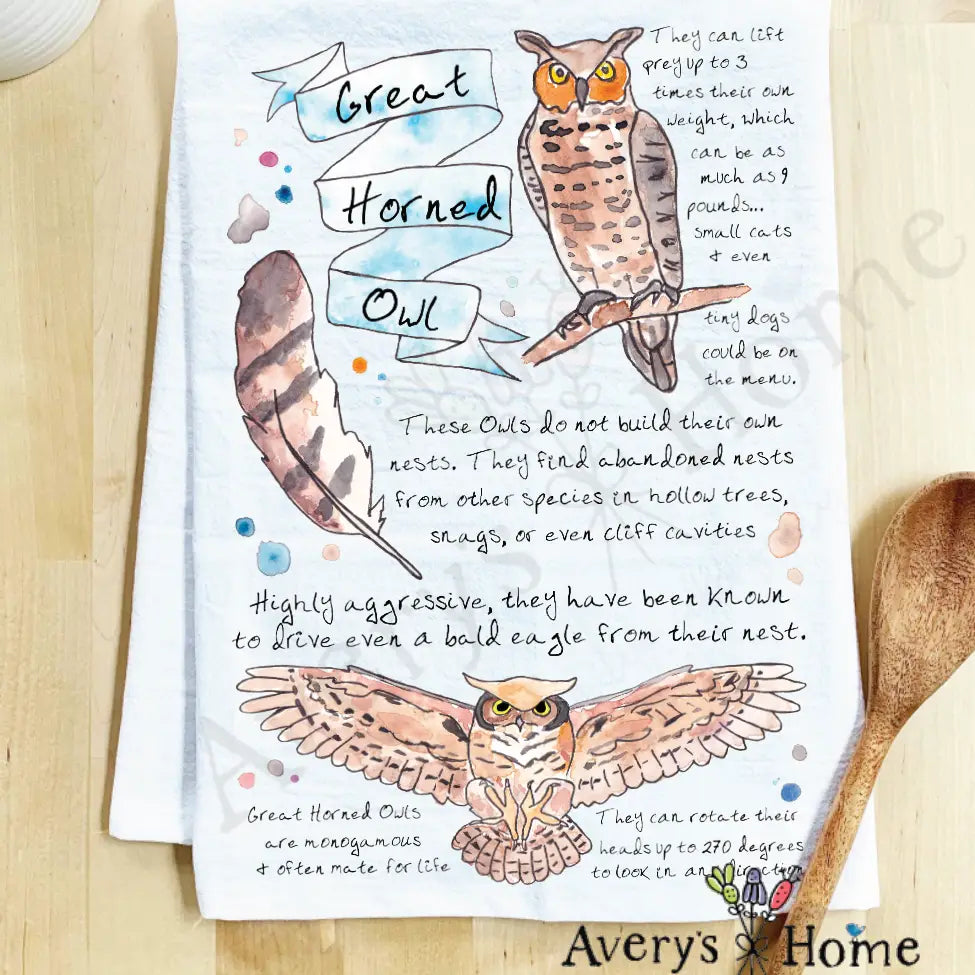 Great
Horned
Owl
They can lift
prey up to 3
times their own
weight, which
can be as
much as 9
pounds...
small cats
& even
tiny dogs
could be on
the menu.
These Owls do not build their own
nests. They find abandoned nests
from other species in hollow trees,
snags, or even cliff cavities
Highly aggressive, they have been known
to drive even a bald eagle from their nest.
Great Horned Owls
are monogamous
& often mate for life
They can rotate their
heads up to 270 degrees
to look in any direction
Avery's Home
Avery's Home